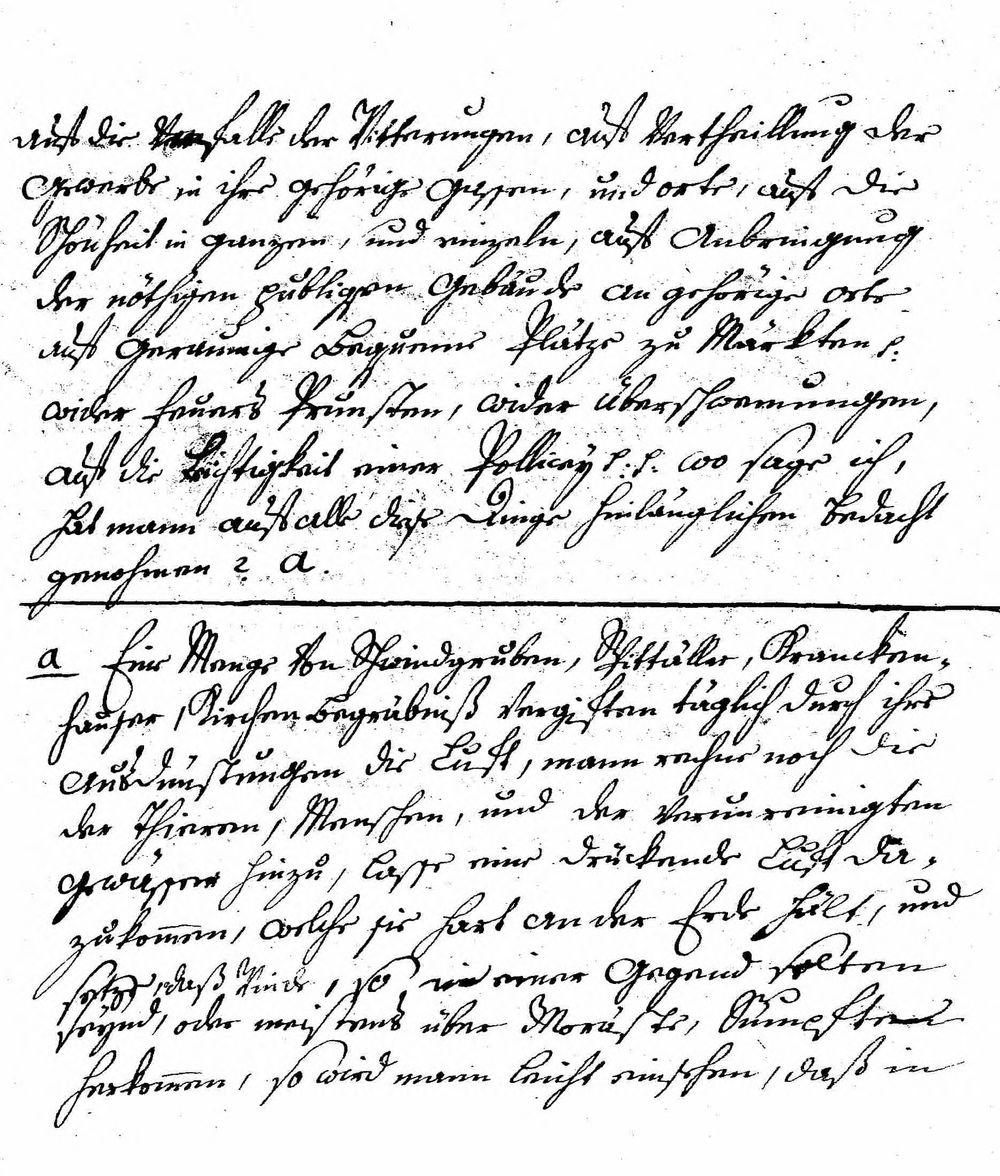 auf die falle der Witterungen, auf Vertheillung der
Gewerbe in ihre gehörige Gassen, und orte, auf die
Schönheit in ganzen, und einzeln, auf Anbringung
der nöthigen publiquen Gebäude an gehörige orte
auf Geraumige bequeme Plätze zu Märkten p.
wider feuers Prunsten, wider überschwemungen,
auf die Leichtigkeit einer Pollicey p. p. wo sage ich,
hat mann auf alle diese Dinge hinlänglichen bedacht
genohmen? a.
a Eine Menge von Schwindgruben, Spittäller, Krancken-
hauser, Kirchen begräbniß vergiften täglich durch ihre
Ausdünstungen die Luft, mann rechne noch die
der Thieren, Menschen, und der verunreinigten
Gewässer hinzu, lasse eine drückende Luft da-
zukommen, welche sie hart an der Erde hält, und
setze, daß Winde, so in einer Gegend selten
seynd, oder meistens über Moräste, Sümpfte
herkommen, so wird mann leicht einsehen, daß in